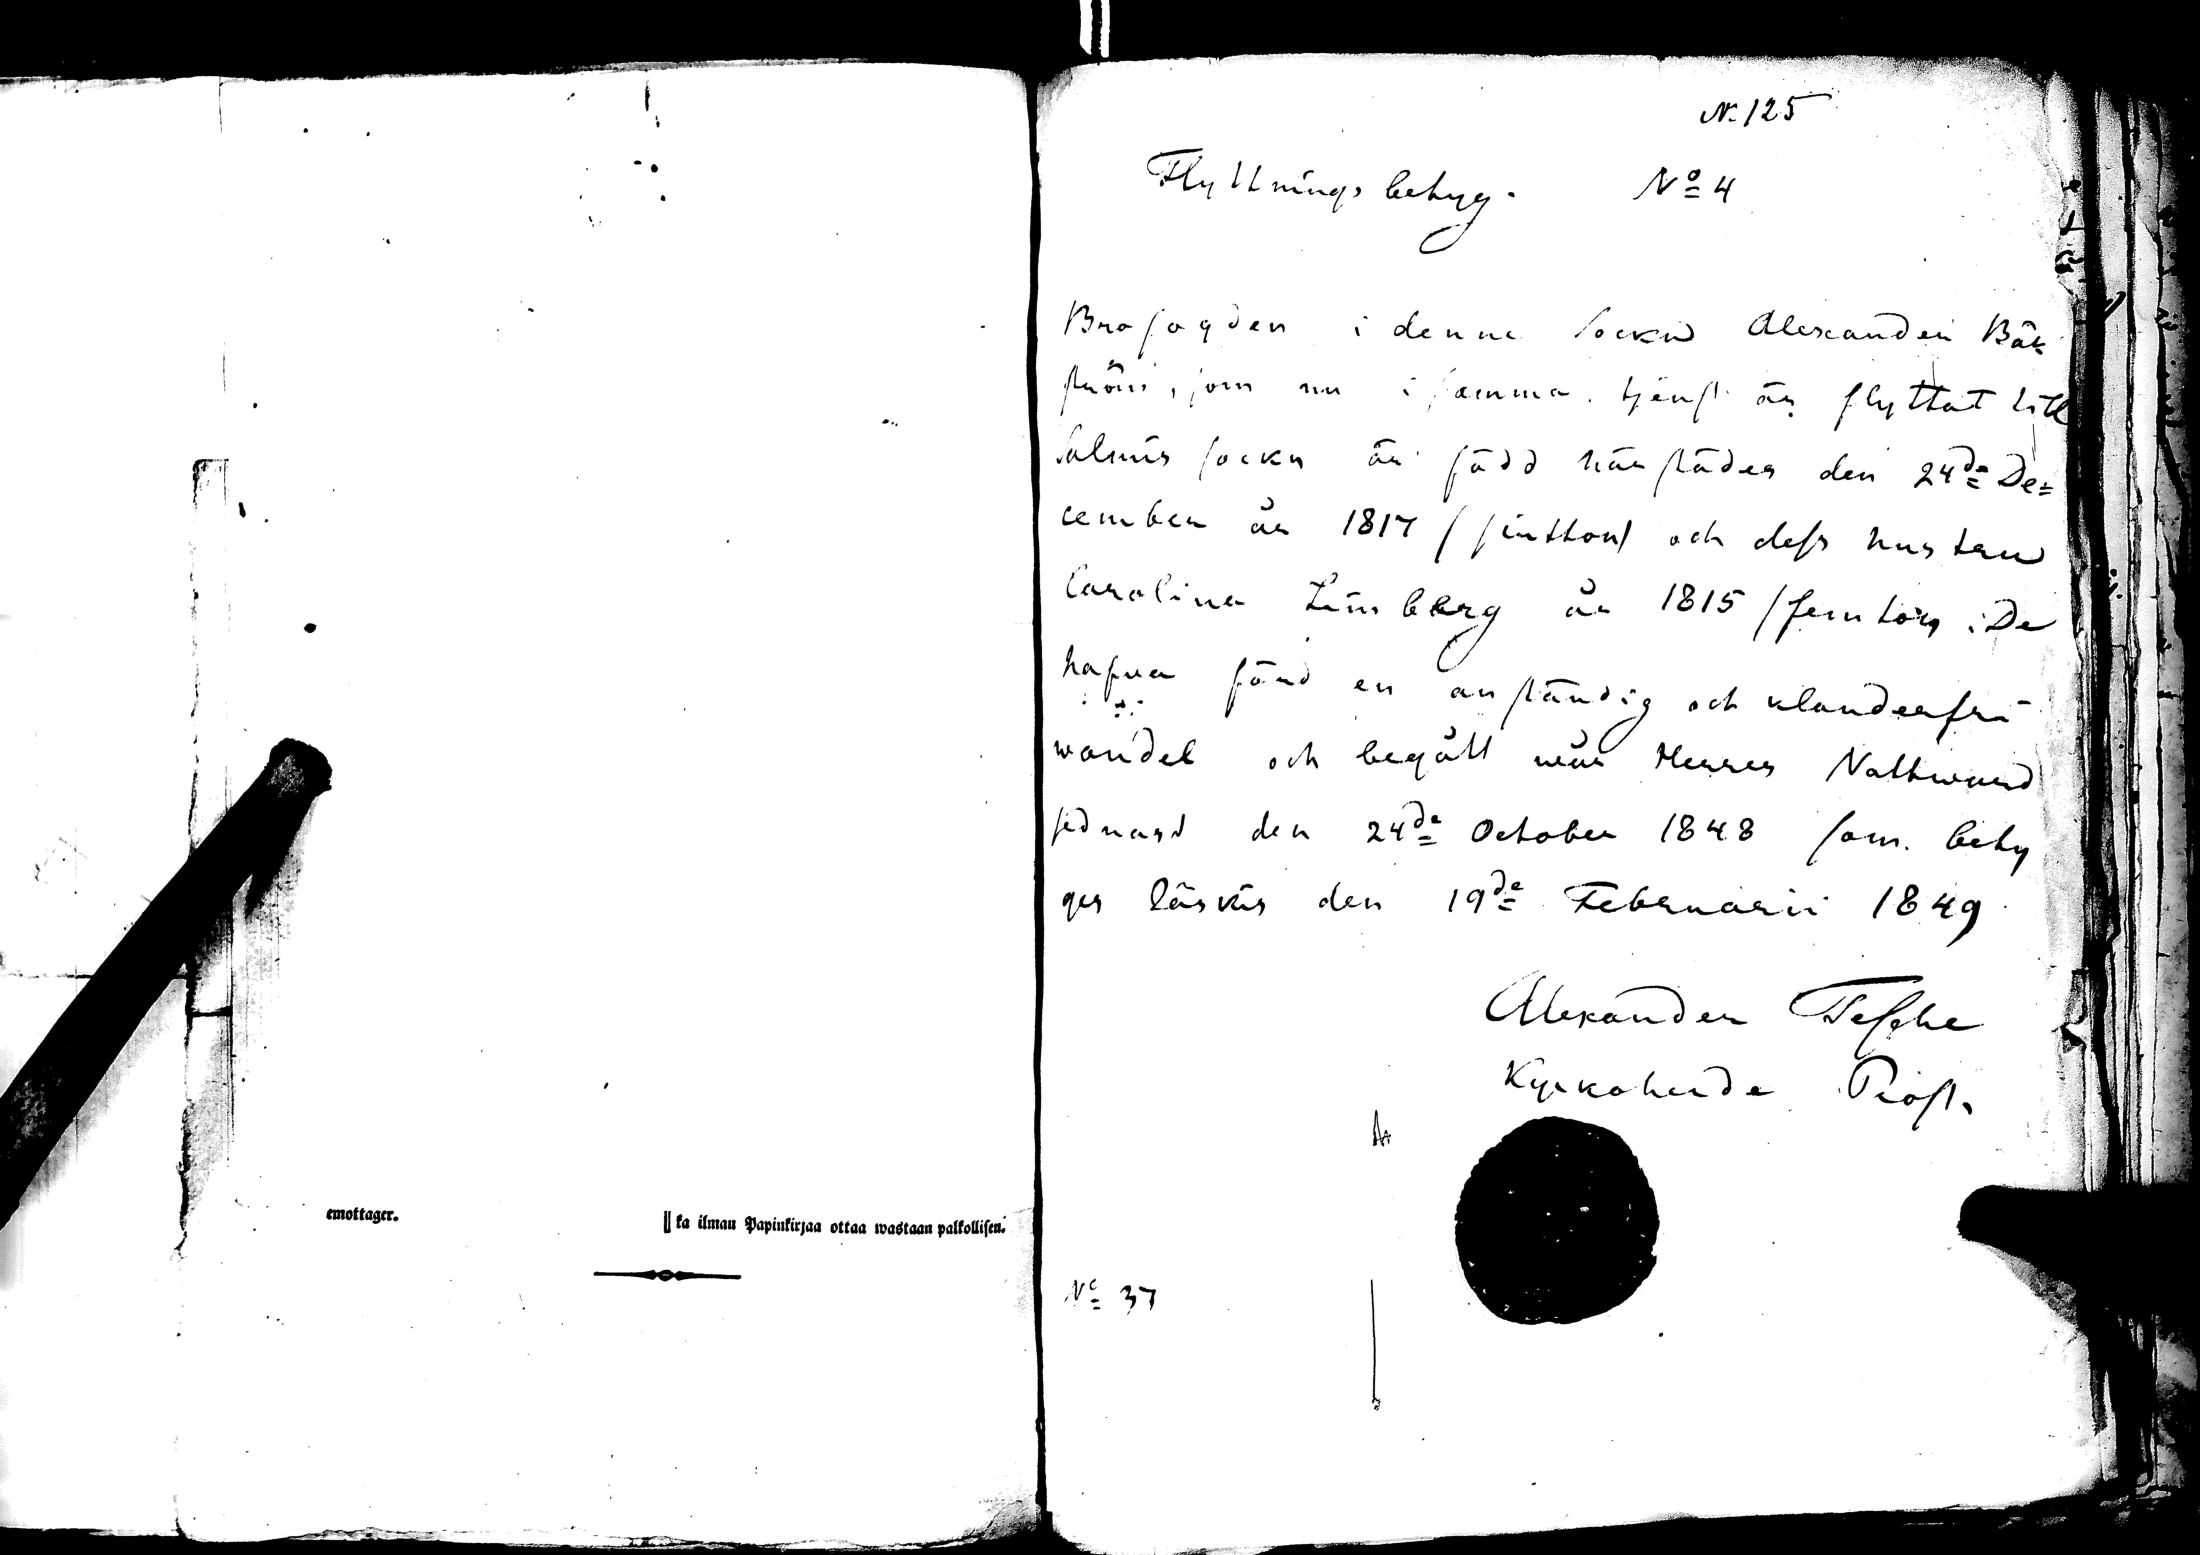 emottager.
ka ilman Papinkirjaa ottaa wastaan palkollisen.
N. 125
Flyttningsbetyg. Nº 4
Brofogden i denna sockn Alexander Bäk
ström, som nu i samma tjenst är flyttat till
Salmis sockn är född härstädes den 24de De=
cember år 1817 /sjutton/ och dess hustru
Carolina Limberg år 1815 /femton/ : De
hafva fört en anständig och klanderfri
wandel och begått wår Herres Nattward
sednast den 24de October 1848 som bety
ges den 19de Februarii 1849
Alexander
Kyrkoherde Prost.
Nº 37